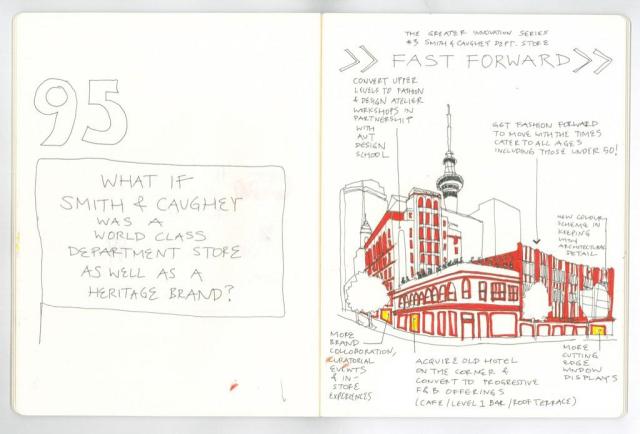 95
WHAT IF
SMITH & CAUGHEY
WAS A
WORLD CLASS
DEPARTMENT STORE
AS WELL AS A
HERITAGE BRAND?
THE GREATER INNOVATION SERIES
#3 SMITH & CAUGHEY DEPT. STORE
>> FAST FORWARD >>
CONVERT UPPER
LEVELS TO FASHION
& DESIGN ATELIER
WORKSHOPS IN
PARTNERSHIP
WITH
AUT
DESIGN
SCHOOL
GET FASHION FORWARD
TO MOVE WITH THE TIMES
CATER TO ALL AGES
INCLUDING THOSE UNDER 50!
NEW COLOUR
SCHEME IN
KEEPING
WITH
ARCHITECTURAL
DETAIL
MORE
BRAND
COLLABORATION,
CURATORIAL
EVENTS
& IN-
STORE
EXPERIENCES
ACQUIRE OLD HOTEL
ON THE CORNER &
CONVERT TO PROGRESSIVE
F&B OFFERINGS
(CAFE/LEVEL 1 BAR/ROOF TERRACE)
MORE
CUTTING
EDGE
WINDOW
DISPLAYS